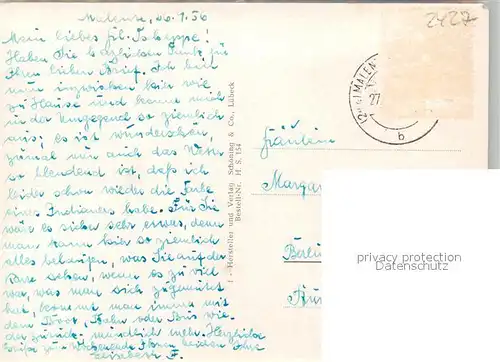 Malente, 26.7.56
Mein liebes Frl. Scheppe!
Haben Sie herzlichen Dank für
Ihren lieben Brief. Ich bin
nun inzwischen hier wie
zu Hause und kenne mich
in der Umgegend so ziemlich
aus; es ist wunderschön,
zumal nun auch das Wetter
so blendend ist, daß ich
leider schon wieder die Farbe
eines Indianers habe. Für Sie
wäre es sicher sehr etwas, denn
man kann hier so ziemlich
alles belaufen, was Sie auf der
Karte sehen, wenn es zu viel
war, was man sich zugemutet
hat, kommt man immer mit
dem Boot, Bahn oder Bus wie-
der zurück. mündlich mehr. Herzliche
Grüße zum Wochenende Ihnen beiden Ihre
Elisabeth F.
I - Hersteller und Verlag Schöning & Co., Lübeck
Bestell-Nr. H. S. 154
2427
MALEN
27
b
Fräulein
Margar
Berlin
privacy protection
Datenschutz